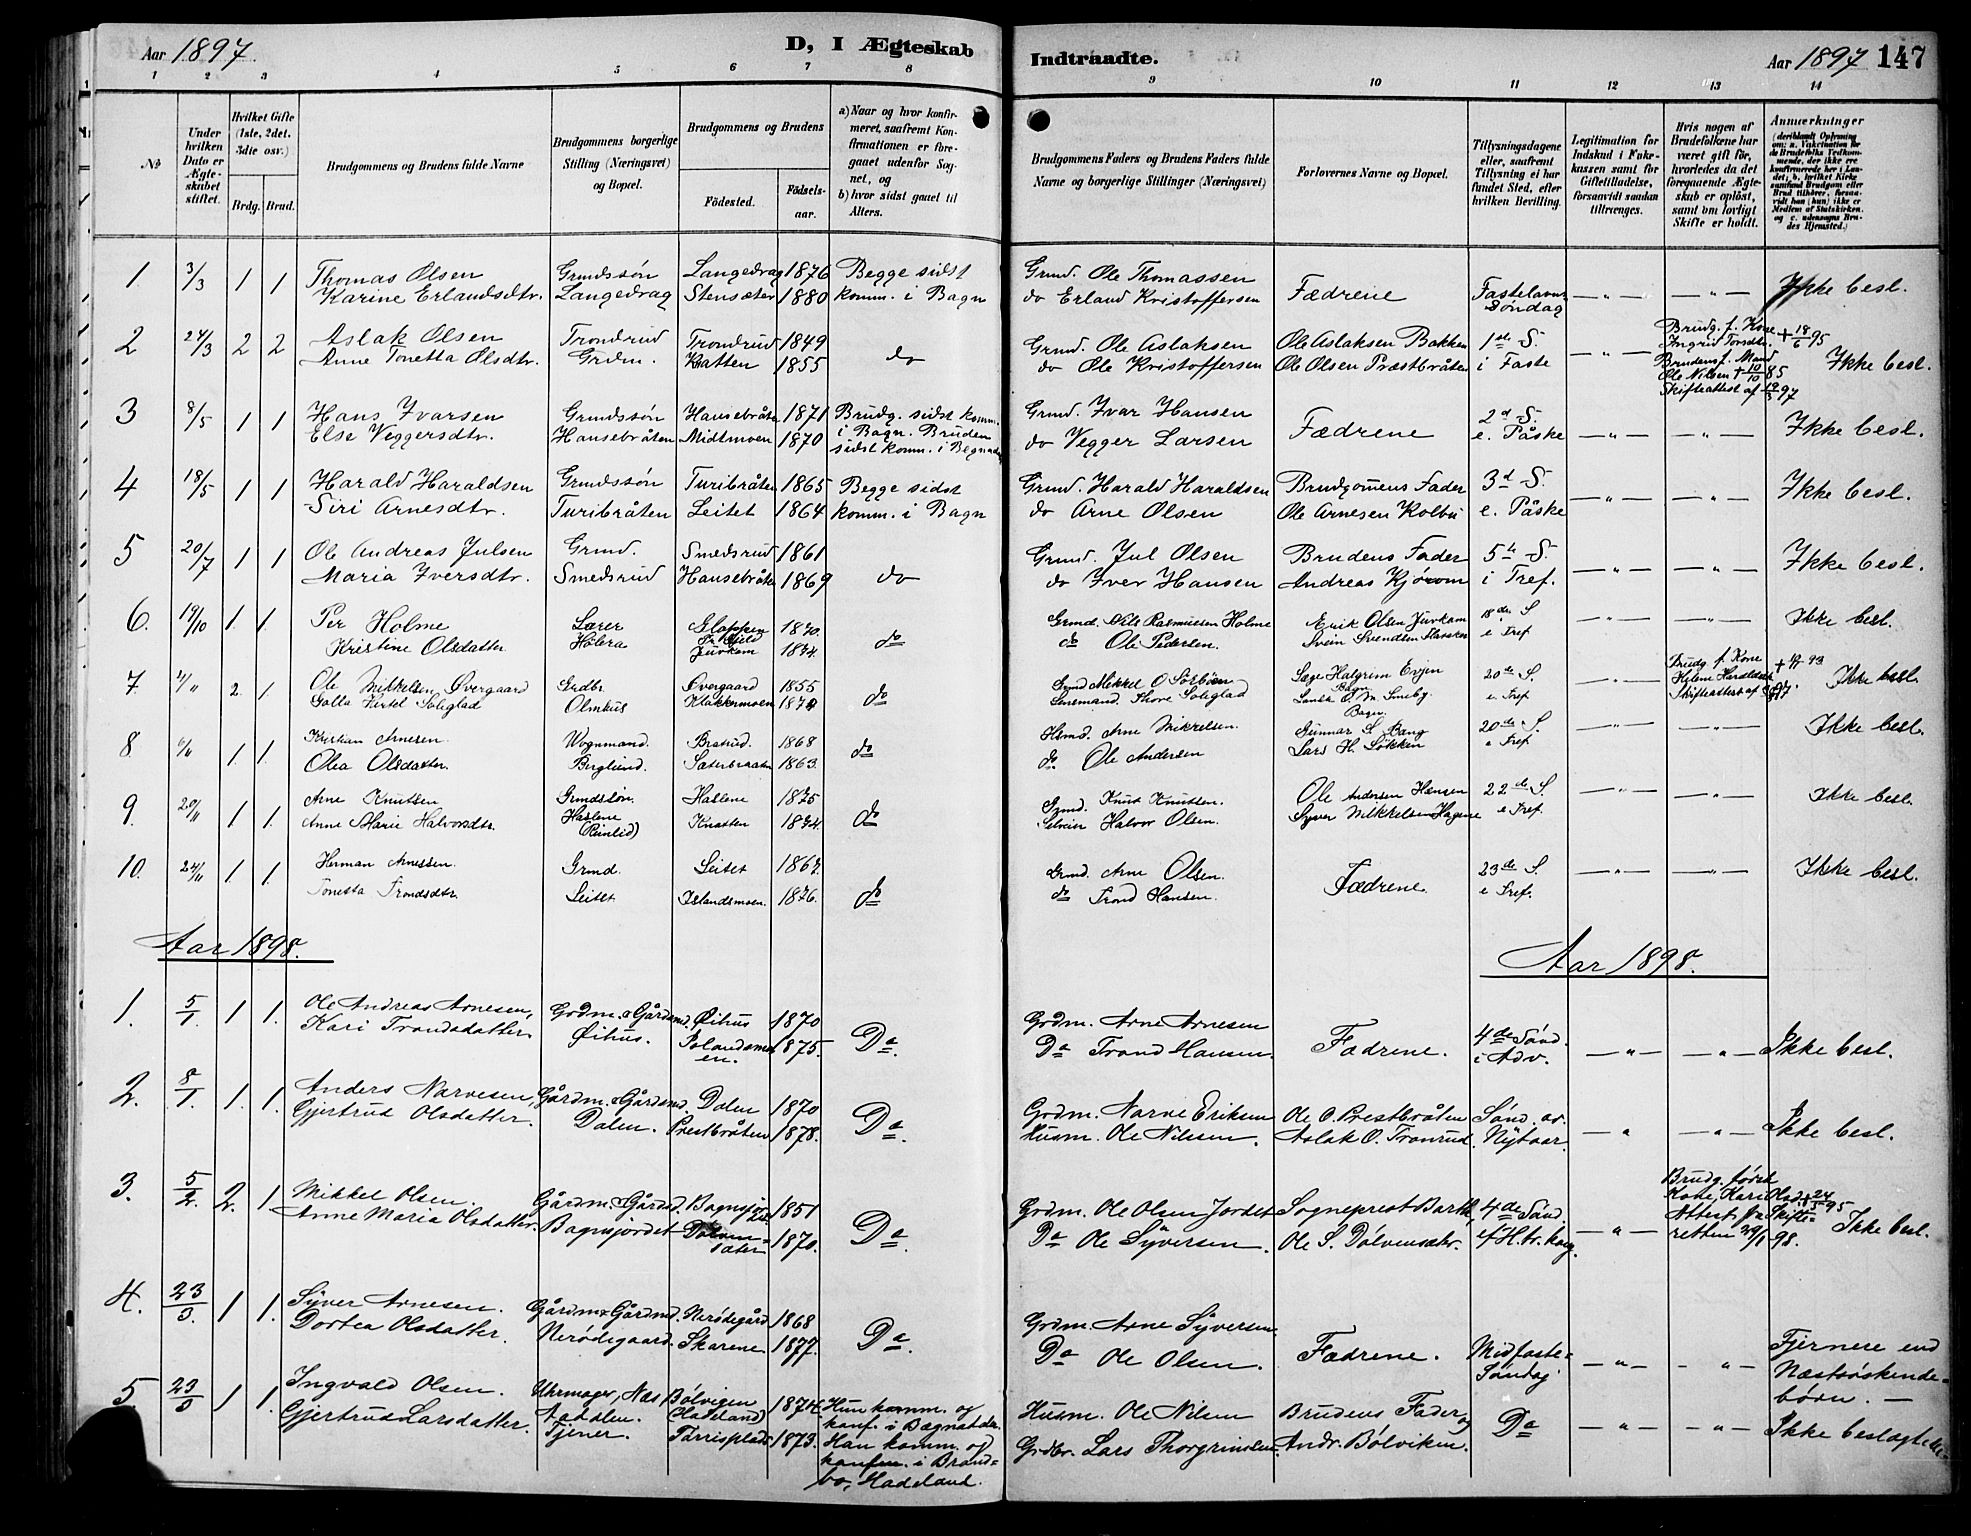 Aar 1897 D, I Ægteskab
1 2 3 4 5 6 7 8
No
Under hvilken Dato er Ægteskabet stiftet.
Hvilket Gifte (1ste, 2det. 3die osv.)
Brdg. Brud.
Brudgommens og Brudens fulde Navne
Brudgommens borgerlige Stilling (Næringsvei) og Bopæl.
Brudgommens og Brudens
Fødested. Fødsels-aar.
a) Naar og hvor konfirmeret, saafremt Konfirmationen er foregaaet udenfor Sognet, og
b) hvor sidst gaaet til Alters.
1 3/3 1 1 Thomas Olsen Grundssøn Langedrag 1876 Begge sidst
Karine Erlandsdtr. Langedrag Stensæter 1880 komm. i Bagn
2 24/3 2 2 Aslak Olsen Trondrud Trondrud 1849 do
Anne Tonetta Olsdtr. Grdm. Katten 1855
3 8/5 1 1 Hans Ivarsen Grundssøn Hansebråte 1871 Brudg. sidst komm.
Else Veggersdtr. Hansebråten Midtmoen 1870 i Bagn. Bruden
sidst komm. i Begnad
4 18/5 1 1 Harald Haraldsen Grundssøn Turibråten 1865 Begge sidst
Siri Arnesdtr. Turibråten Leitet 1864 komm. i Bagn
5 20/7 1 1 Ole Andreas Julsen Grmd. Smedsrud 1861
Maria Iversdtr. Smedsrud Hansebråte 1869 do
6. 19/10 1. 1. Per Holme Lærer 1870.
Kristine Olsdatter Hølera Juvkam 1874. do
7. 2. 1. Ole Mikkelsen Øvergaard Grdbr. Øvergaard 1855
Soliglad Olmhus Klakkermoen do
8 1 1. Kristian Arnesen Vognmand. Bratrud. 1868
Olea Olsdatter. Berglund. Sæterbraaten 1863. do
9. 20/11 1 1. Arne Knutsen Grmdssøn. Haslene 1875
Anne Marie Halvorsdtr. Haslene Knatten 1874. do
(Rinlid)
10. 24/11 1. 1. Herman Arnessen. Grmd. Leitet 1867.
Tonetta Trondsdtr. Leitet Islandsmoen. 1876. do
Aar 1898.
1. 5/1. 1 1. Ole Andreas Arnesen, Grdm. & Gårdsmd. Øihus 1870
Kari Trondsdatter. Øihus. Islandsmo 1875. Do.
en.
2. 8/1. 1. 1. Anders Narvesen, Gårdm. & Gårdsmd. Dalen 1870
Gjertrud Olsdatter. Dalen. Prestbråten 1878. Do.
3. 5/2. 2. 1 Mikkel Olsen. Gårdm. & Gårdsd. Bagnsjor 1851
Anne Maria Olsdatter. Bagnsjordet Dølven= 1870. Do.
sæter
4. 23/3. 1 1. Syver Arnesen. Gårdm & Gårdmd. Nerødegård 1868
Dortea Olsdatter. Nerødegaard. Skarene. 1877. Do.
5. 23/3 1 1. Ingvald Olsen. Uhrmager, Næs Bølvigen 1874. Hun komm. og
Gjertrud Larsdatter. Aadalen. (Hadeland) konf. i Bægnadalen.
Tjener. Tørrisplads 1873. Han komm. og
konfm. i Brand=
bo, Hadeland.
Indtraadte. Aar 1897 147
9 10 11 12 13 14
Brudgommens Faders og Brudens Faders fulde Navne og borgerlige Stillinger (Næringsvei)
Forlovernes Navne og Bopæl.
Tillysningsdagene eller, saafremt Tillysning ei har fundet Sted, efter hvilken Bevilling.
Legitimation for Indskud i Enkekassen samt for Giftetilladelse, forsaavidt saadan tiltrænges.
Hvis nogen af Brudefolkene har været gift før, hvorledes da det foregaaende Ægteskab er opløst, samt om lovligt Skifte er holdt.
Anmærkninger
(deriblandt Oplysning om: a. Vakcination for de Brudefolks Vedkommende, der ikke ere konfirmerede her i Landet; b. hvilket Kirkesamfund Brudgom eller Brud tilhører, forsaavidt han (hun) ikke er Medlem af Statskirken, og c. udensogns Brudes Hjemsted.)
Grmd. Ole Thomassen Fædrene Fastelavns — " — — " — Ikke besl.
do Erland Kristoffersen Søndag
Grmd. Ole Aslaksen Ole Aslaksen Bakken 1ste S. — " — Brudg. f. Kone Ingrid Torsdtr. + 18/6 95
do Ole Kristoffersen Ole Olsen Præstbråten i Faste Brudens f. Mand Ikke besl.
Ole Nilsen + 10/10 85
Skifteattest af 19/3 97
Grmd. Ivar Hansen Fædrene 2d S. — " — — " — Ikke besl.
do Vegger Larsen e. Påske
Grmd. Harald Haraldsen Brudgomens Fader 3d S. — " — — " — Ikke besl.
do Arne Olsen Ole Arnesen Kolbu e. Påske
Grmd. Jul Olsen Brudens Fader 5te S. — " — — " — Ikke besl.
do Iver Hansen Andreas Kjørom i Tref.
Grmd. Nils Rasmussen Holme Erik Olsen Juvkam 18de S. — " — — " — Ikke besl.
do Ole Pedersen. Svein Svendsen e Tref
Grmd Mikkel O Sørbøen 20de S. — " — Brudg. f. Kone Ikke besl.
Lensmand. Thore Soliglad e Tref Skifteattest af
Bagn.
Husmd. Arne Mikkelsen. Gunnar S. Bang 20de S. — " — — " — Ikke besl.
do. Ole Andersen Lars H. Løkken e Tref.
Grmd. Knut Knutsen. Ole Andersen Hansen 22de S. — " — — " — Ikke besl.
Halvor Olsen. Syver Mikkelsen Hagene e Tref.
Grmd. Arne Olsen. Fædrene. 23de S. — " — — " — Ikke besl.
do Trond Hansen. e Tref.
Aar 1898.
Grdm. Arne Arnesen Fædrene. 4de Sønd. — " — — " — Ikke besl.
Do Trond Hansen. i Adv.
Grdm. Narve Eriksen Ole O. Prestbråten Sønd. ov. — " — " — Ikke besl.
Husm. Ole Nilsen. Aslak O. Tronrud. Nytaar.
Grdm. Ole Olsen Jordet Sogneprest Barth, 4de Sønd. — " — Brudg. først Kone, Kari Olsd. + 24/5 95
Do Ole Syversen. Ole S. Dølvensæter. ef H. tr. kong. Attest fra Skifte= Ikke besl.
retten 29/1 98.
Grdm. Arne Syversen. Fædrene. Midfaste= — " — - " — Fjernere end
Do Ole Olsen. Søndag Næstsøskende=
børn. —
Husm. Ole Nilsen Brudens Fader og Do — " — — " — Ikke beslægtede.
Grdbr. Lars Thorgrimsen. Andr. Bølviken.